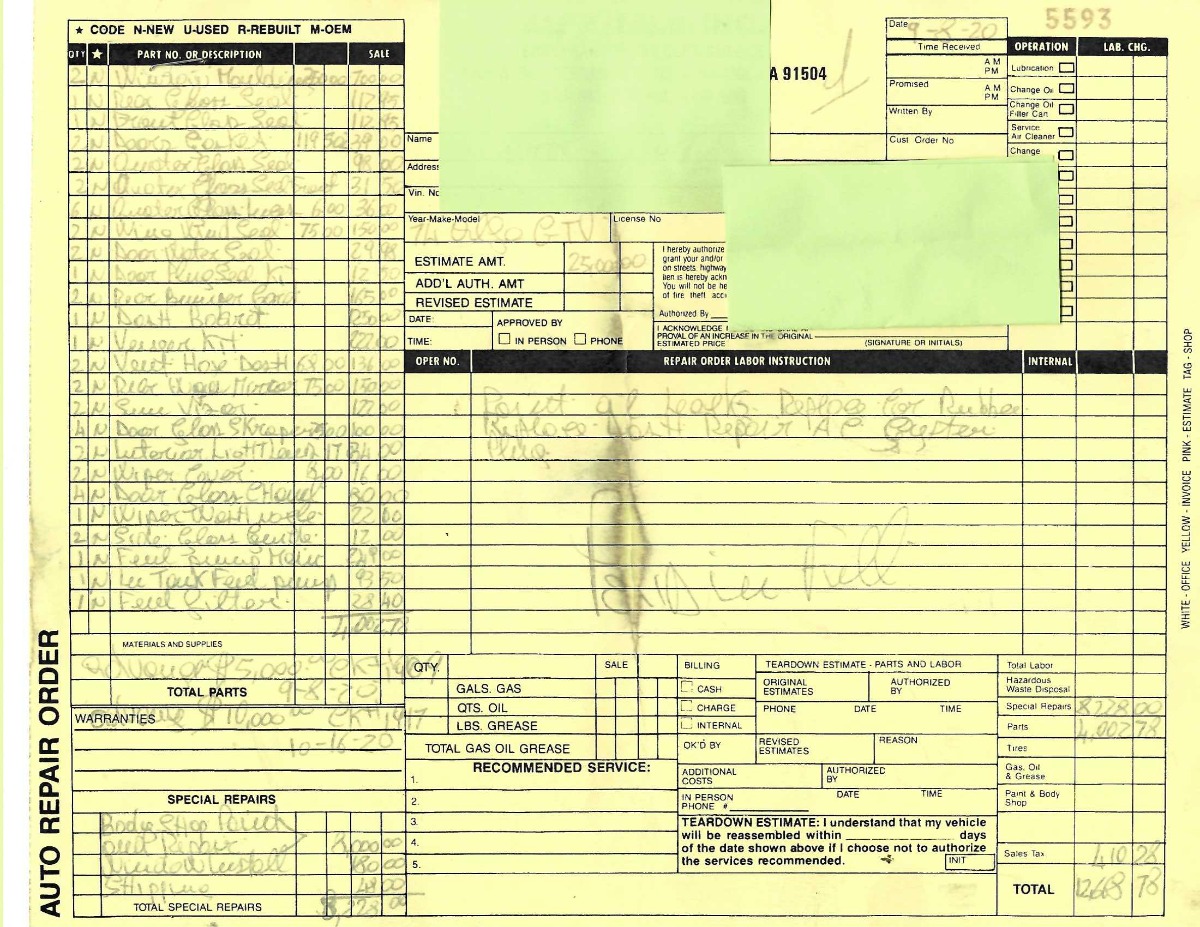 ★ CODE N-NEW U-USED R-REBUILT M-OEM
QTY ★ PART NO. OR DESCRIPTION SALE
2 N 700 00
1 N Rear Glass Seal 112 45
1 N Front Glass Seal 112 45
2 N Door 119 50
2 N Quater Glass Seal 98 00
2 N Quater Glass Seal Front 31 50
6 N Quater Glass 6 00 36 00
2 N Wing Wind Seal 75 00 150 00
2 N Door Water Seal 29 95
1 N Door Plug Seal Kit 12 50
2 N Rear Bumper 165 00
1 N Dash Board 1250 00
1 N Kit 222 00
2 N Vent Hose Dash 68 00 136 00
2 N Mirror 75 00 150 00
2 N Sun Vizor 177 00
4 N Door Glass 100 00
2 N Interior Light 17 34 00
2 N Wiper Cover 8 00 16 00
4 N Door Glass 30 00
1 N Wiper 22 00
2 N Side Glass Guide 12 00
1 N Fuel pump Main 249 00
1 N In Tank Fuel pump 93 50
1 N Fuel Filter 28 40
4,002.78
MATERIALS AND SUPPLIES
Advance $5,000.00 CK#
TOTAL PARTS
9-8-20
WARRANTIES
$10,000 CK#
10-16-20
SPECIAL REPAIRS
Body Shop
Repair 8,000 00
Window Install 180 00
Shipping 48 00
TOTAL SPECIAL REPAIRS 8,228 00
AUTO REPAIR ORDER
A 91504
Name
Address
Vin. No
Year-Make-Model
74 Alfa GTV
License No
ESTIMATE AMT. 25000 00
ADD'L AUTH. AMT
REVISED ESTIMATE
DATE:
TIME:
APPROVED BY
IN PERSON PHONE
I hereby authorize
grant your and/or
on streets, highway
lien is hereby ackn
You will not be he
of fire theft acc
Authorized By
I ACKNOWLEDGE
PROVAL OF AN INCREASE IN THE ORIGINAL
ESTIMATED PRICE
(SIGNATURE OR INITIALS)
Date 9-8-20
5593
Time Received
AM
PM
Promised
AM
PM
Written By
Cust. Order No
OPERATION LAB. CHG.
Lubrication
Change Oil
Change Oil
Filter Cart
Service
Air Cleaner
Change
OPER NO. REPAIR ORDER LABOR INSTRUCTION INTERNAL
Replace Rubber
Replace Dash Repair AC System
QTY. SALE
GALS. GAS
QTS. OIL
LBS. GREASE
TOTAL GAS OIL GREASE
RECOMMENDED SERVICE:
1.
2.
3.
4.
5.
BILLING
CASH
CHARGE
INTERNAL
OK'D BY
TEARDOWN ESTIMATE - PARTS AND LABOR
ORIGINAL
ESTIMATES
AUTHORIZED
BY
PHONE DATE TIME
REVISED
ESTIMATES
REASON
ADDITIONAL
COSTS
AUTHORIZED
BY
IN PERSON
PHONE #
DATE TIME
TEARDOWN ESTIMATE: I understand that my vehicle
will be reassembled within days
of the date shown above if I choose not to authorize
the services recommended.
INIT
Total Labor
Hazardous
Waste Disposal
Special Repairs 8228 00
Parts 4,002 78
Tires
Gas, Oil
& Grease
Paint & Body
Shop
Sales Tax 410 28
TOTAL 12668 78
WHITE - OFFICE YELLOW - INVOICE PINK - ESTIMATE TAG - SHOP